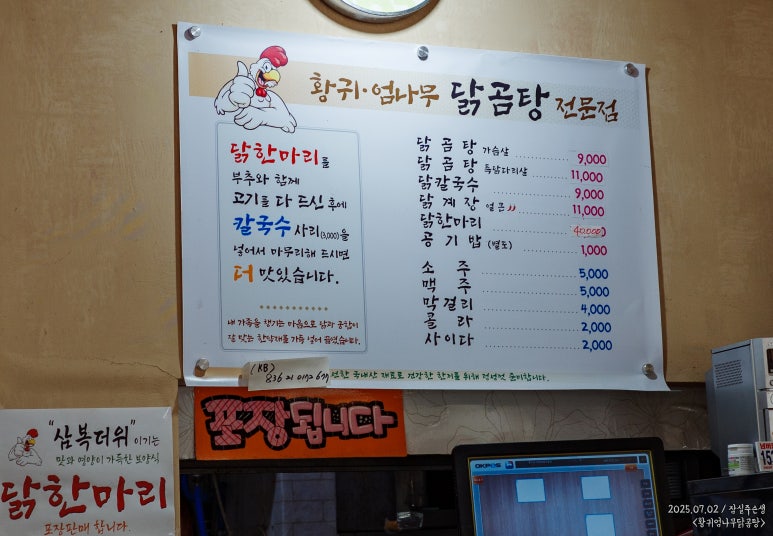 황귀·엄나무 닭곰탕 전문점
닭한마리를
부추와 함께
고기를 다 드신 후에
칼국수 사리(3,000)을
넣어서 마무리해 드시면
더 맛있습니다.
내 가족을 챙기는 마음으로 닭과 궁합이
잘 맞는 한약재를 가득 넣어 끓였습니다.
닭곰탕 가슴살 9,000
닭곰탕 특닭다리살 11,000
닭칼국수 9,000
닭계장 얼큰 11,000
닭한마리 40,000
공기밥 (별도) 1,000
소주 5,000
맥주 5,000
막걸리 4,000
콜라 2,000
사이다 2,000
(KB)
신선한 국내산 재료로 건강한 한끼를 위해 정성껏 준비합니다.
포장됩니다
"삼복더위" 이기는
맛과 영양이 가득한 보양식
닭한마리
포장판매 합니다.
OKPOS
2025.07.02 / 잠실주슨생
<황귀엄나무닭곰탕>